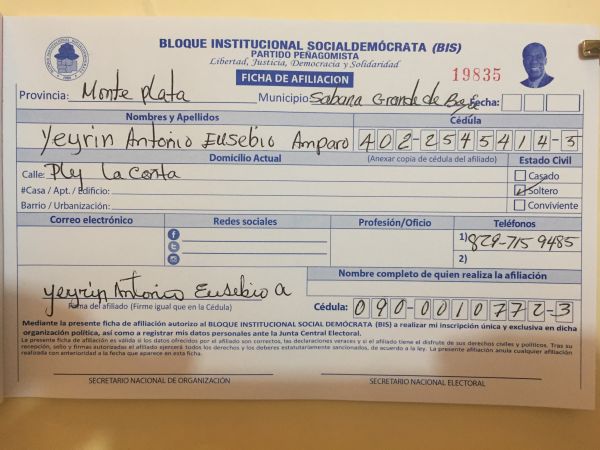 BLOQUE INSTITUCIONAL SOCIALDEMÓCRATA (BIS)
PARTIDO PEÑAGOMISTA
Libertad, Justicia, Democracia y Solidaridad
FICHA DE AFILIACION
19835
Provincia: Monte Plata Municipio Sabana Grande de Fecha:
Nombres y Apellidos Cédula
Yeyrin Antonio Eusebio Amparo 402-2545414-5
Domicilio Actual (Anexar copia de cédula del afiliado) Estado Civil
Calle: La Casado
#Casa / Apt. / Edificio: Soltero
Barrio / Urbanización: Conviviente
Correo electrónico Redes sociales Profesión/Oficio Teléfonos
1) 829-715 9485
2)
Nombre completo de quien realiza la afiliación
Yeyrin Antonio Eusebio A
Firma del afiliado (Firme igual que en la Cédula) Cédula: 090-0010772-3
Mediante la presente ficha de afiliación autorizo al BLOQUE INSTITUCIONAL SOCIAL DEMÓCRATA (BIS) a realizar mi inscripción única y exclusiva en dicha
organización política, así como a registrar mis datos personales ante la Junta Central Electoral.
La presente ficha de afiliación es válida si los datos ofrecidos por el afiliado son correctos, las declaraciones veraces y si el afiliado tiene el disfrute de sus derechos civiles y políticos. Tras su
recepción, sello y firmas autorizadas el afiliado ejercerá todos los derechos y los deberes estatutariamente sancionados, de acuerdo a la ley. La presente afiliación anula cualquier afiliación
realizada con anterioridad a la fecha que aparece en esta ficha.
SECRETARIO NACIONAL DE ORGANIZACIÓN SECRETARIO NACIONAL ELECTORAL